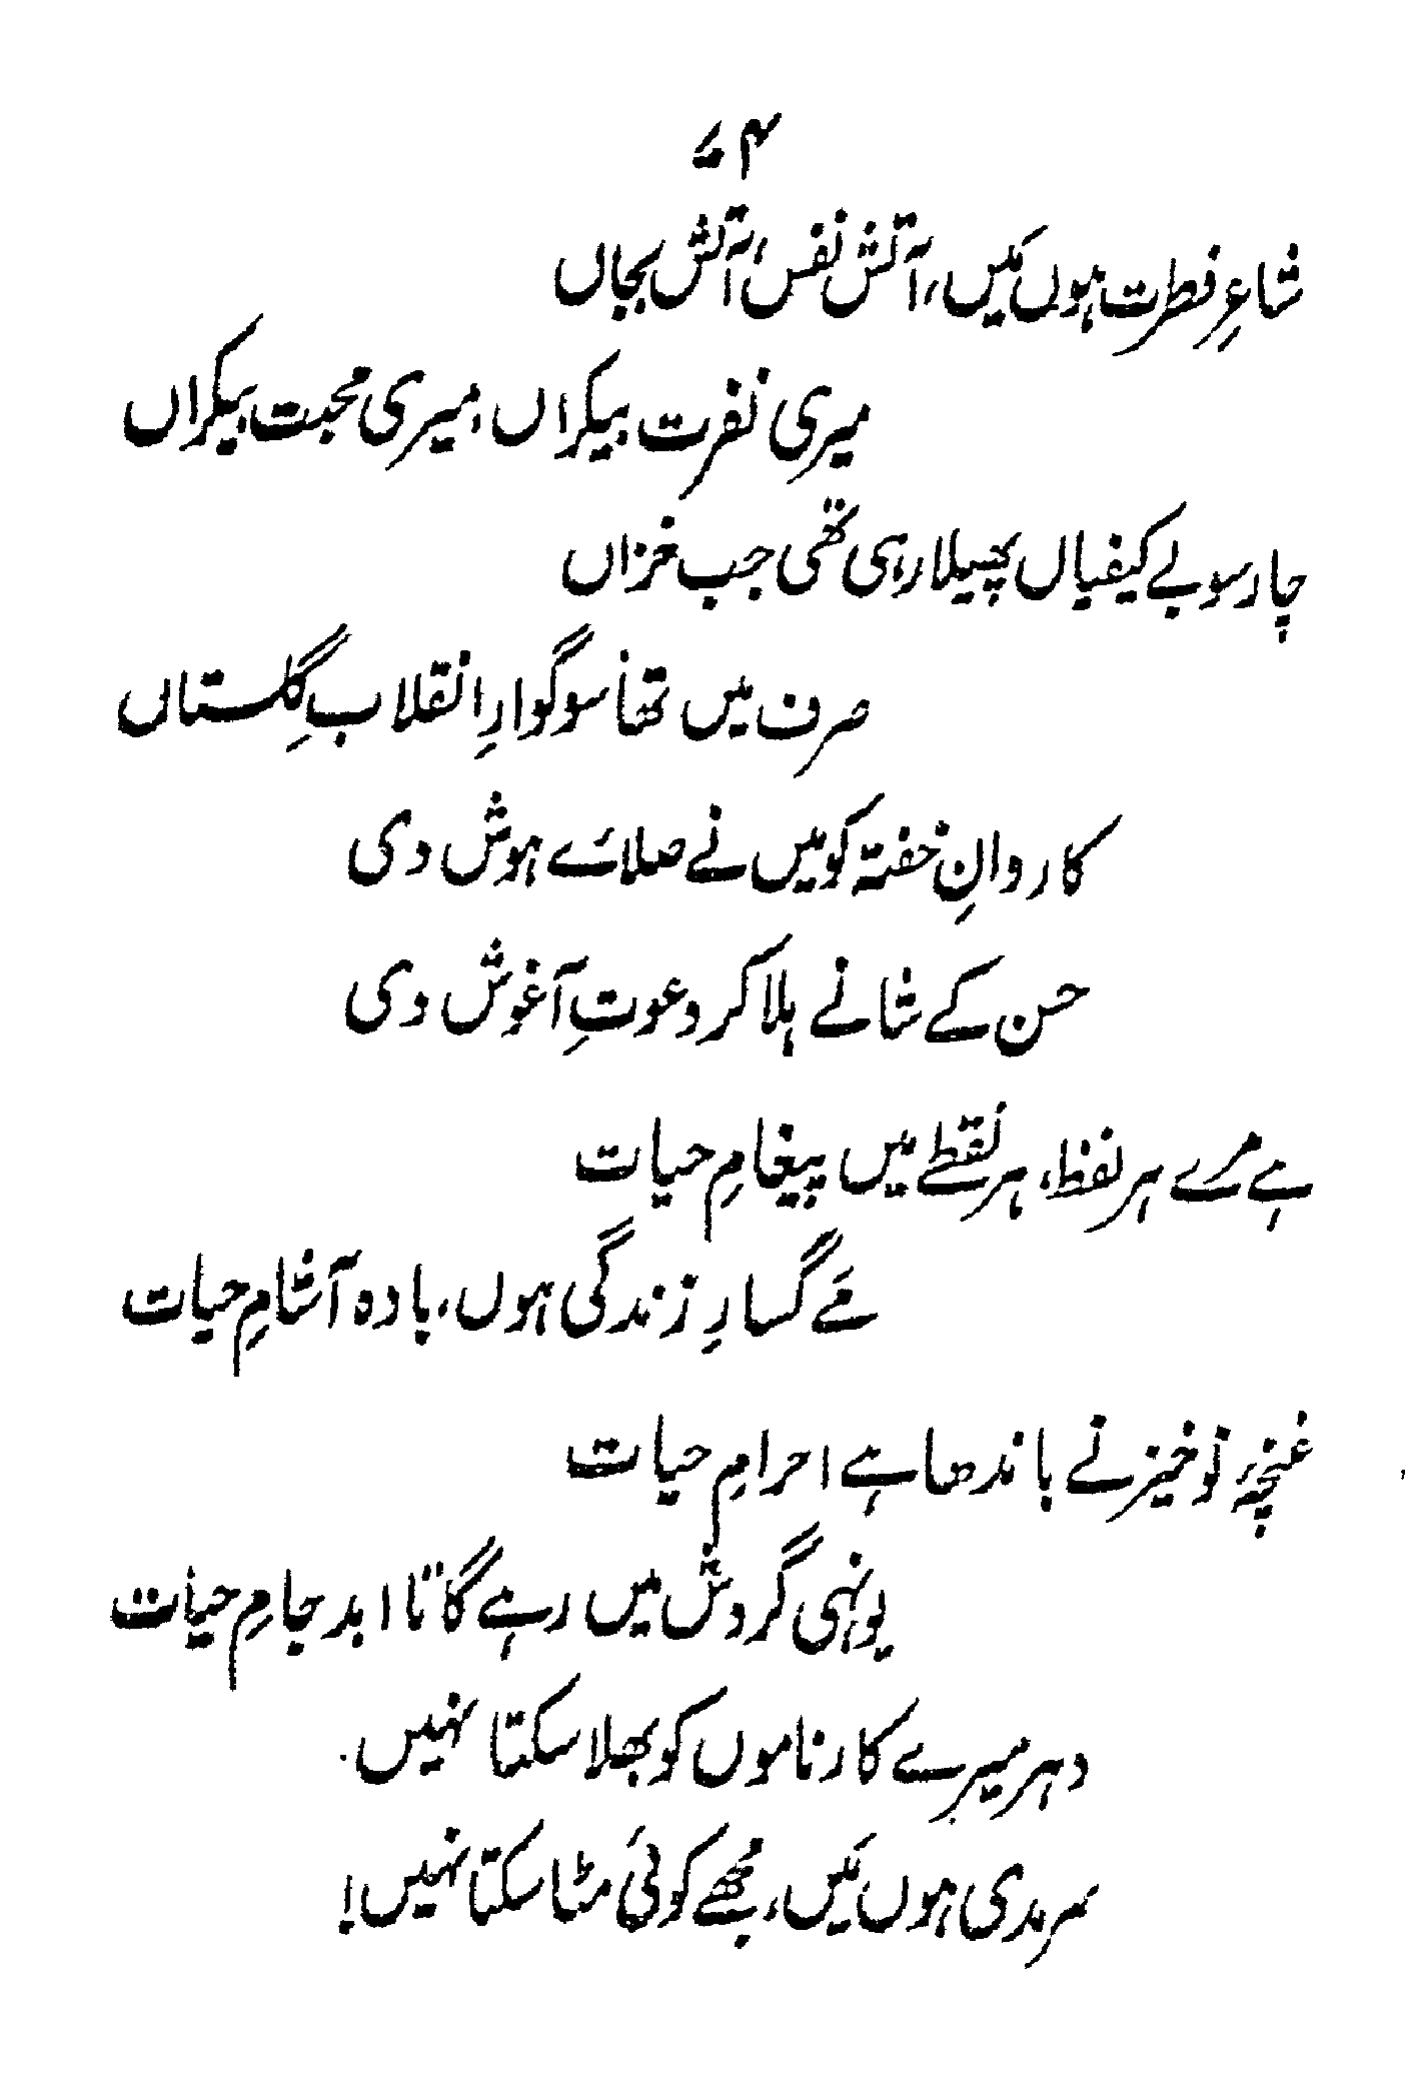 ۴۷
شاعرِ فطرت ہوں مَیں، آتش نفس، آتش بجاں
میری نفرت بیکراں، میری محبت بیکراں
چار سو بے کیفیاں پھیلا رہی تھی جب خزاں
صرف میں تھا سوگوارِ انقلابِ گلستاں
کاروانِ خفتہ کو میں نے صلائے ہوش دی
حسن کے شانے ہلا کر دعوتِ آغوش دی
ہے مرے ہر لفظ، ہر نقطے میں پیغامِ حیات
مَے گسارِ زندگی ہوں، بادہ آشامِ حیات
غنچۂ نوخیز نے باندھا ہے احرامِ حیات
یونہی گردش میں رہے گا تا ابد جامِ حیات
دہر میرے کارناموں کو بھلا سکتا نہیں
سرمدی ہوں مَیں، مجھے کوئی مٹا سکتا نہیں!